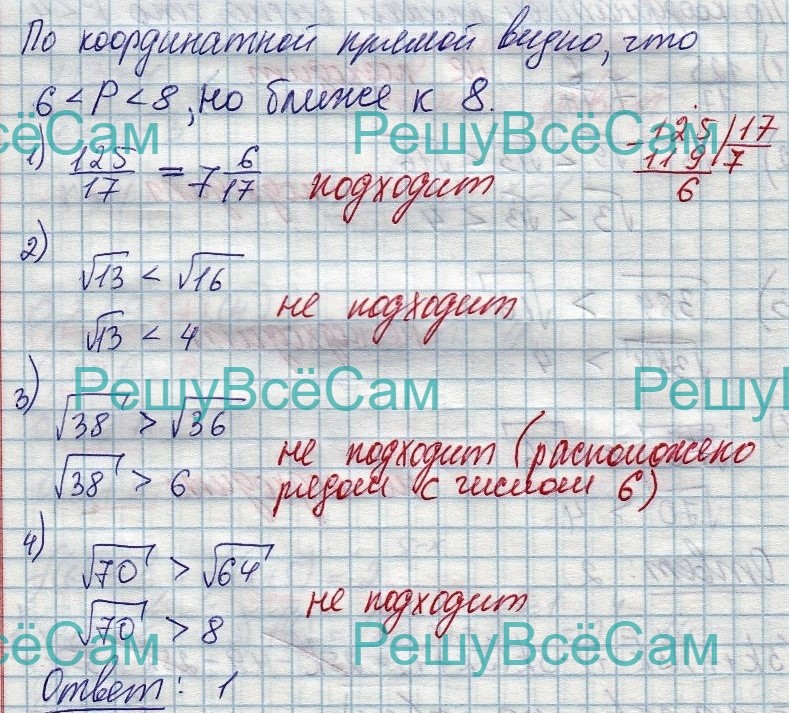 По координатной прямой видно, что
6 < P < 8, но ближе к 8.
ёСам РешуВсёСам
1) 125/17 = 7 6/17 подходит
- 125 | 17
119 | 7
6
2)
√13 < √16
не подходит
√13 < 4
РешуВсёСам РешуВ
3)
√38 > √36
не подходит (расположено
√38 > 6 рядом с числом 6)
4)
√70 > √64
не подходит
√70 > 8
ёСам РешуВсёСам
Ответ: 1